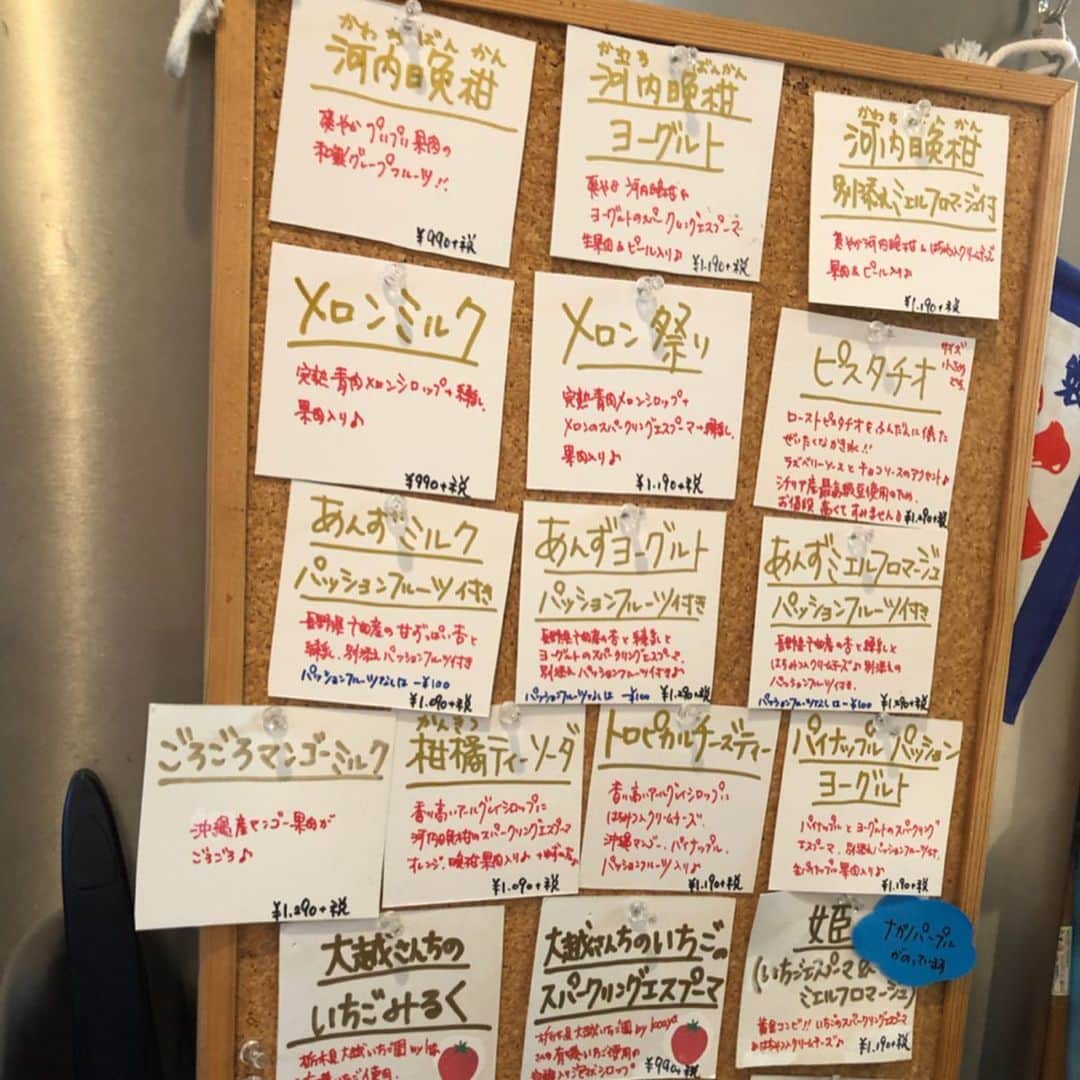 かわちばんかん
河内晩柑
爽やかプリプリ果肉の
和製グレープフルーツ!!
¥990+税
かわちばんかん
河内晩柑
ヨーグルト
爽やか河内晩柑&
ヨーグルトのスパークリングエスプーマ
生果肉&ピール入り♪
¥1.190+税
かわちばんかん
河内晩柑
別添えミエルフロマージュ付
爽やか河内晩柑&はちみつ入クリームチーズ
果肉&ピール入り♪
¥1.190+税
メロンミルク
完熟青肉メロンシロップ+練乳。
果肉入り♪
¥990+税
メロン祭り
完熟青肉メロンシロップ+
メロンのスパークリングエスプーマ+練乳。
果肉入り♪
¥1.190+税
ピスタチオ
サイズ
小さめ
です
ローストピスタチオをふんだんに使った
ぜいたくなかき氷!!
ラズベリーソースとチョコソースのアクセント♪
シチリア産最高級豆使用のため、
お値段高くてすみません
¥1.290+税
あんずミルク
パッションフルーツ付き
長野県千曲産の甘ずっぱい杏と
練乳。別添えパッションフルーツ付き
パッションフルーツなしは -¥100
¥1.090+税
あんずヨーグルト
パッションフルーツ付き
長野県千曲産の杏と練乳と
ヨーグルトのスパークリングエスプーマ。
別添えパッションフルーツ付き♪
パッションフルーツなしは -¥100
¥1.290+税
あんずミエルフロマージュ
パッションフルーツ付き
長野県千曲産の杏と練乳と
はちみつ入クリームチーズ♪別添えの
パッションフルーツ付き。
パッションフルーツなしは -¥100
¥1.290+税
ごろごろマンゴーミルク
沖縄産マンゴー果肉が
ごろごろ♪
¥1.290+税
かんきつ
柑橘ティーソーダ
香り高いアールグレイシロップに
河内晩柑のスパークリングエスプーマ
オレンジ、晩柑果肉入り♪
¥1.090+税
トロピカルチーズティー
香り高いアールグレイシロップに
はちみつ入クリームチーズ。
沖縄マンゴー、パイナップル、
パッションフルーツ入り♪
¥1.190+税
パイナップルパッション
ヨーグルト
パイナップルとヨーグルトのスパークリング
エスプーマ。別添えパッションフルーツ付。
生パイナップル果肉入り♪
¥1.190+税
大越さんちの
いちごみるく
栃木県大越いちご園by
大越さんちのいちごの
スパークリングエスプーマ
栃木県大越いちご園by
さんの有機いちご使用の
¥990+税
姫
(いちごエスプーマ&
ミエルフロマージュ)
黄金コンビ!!いちごのスパークリングエスプーマ
&はちみつ入クリームチーズ♪
¥1.190+税
ナガノパープル
がのっています